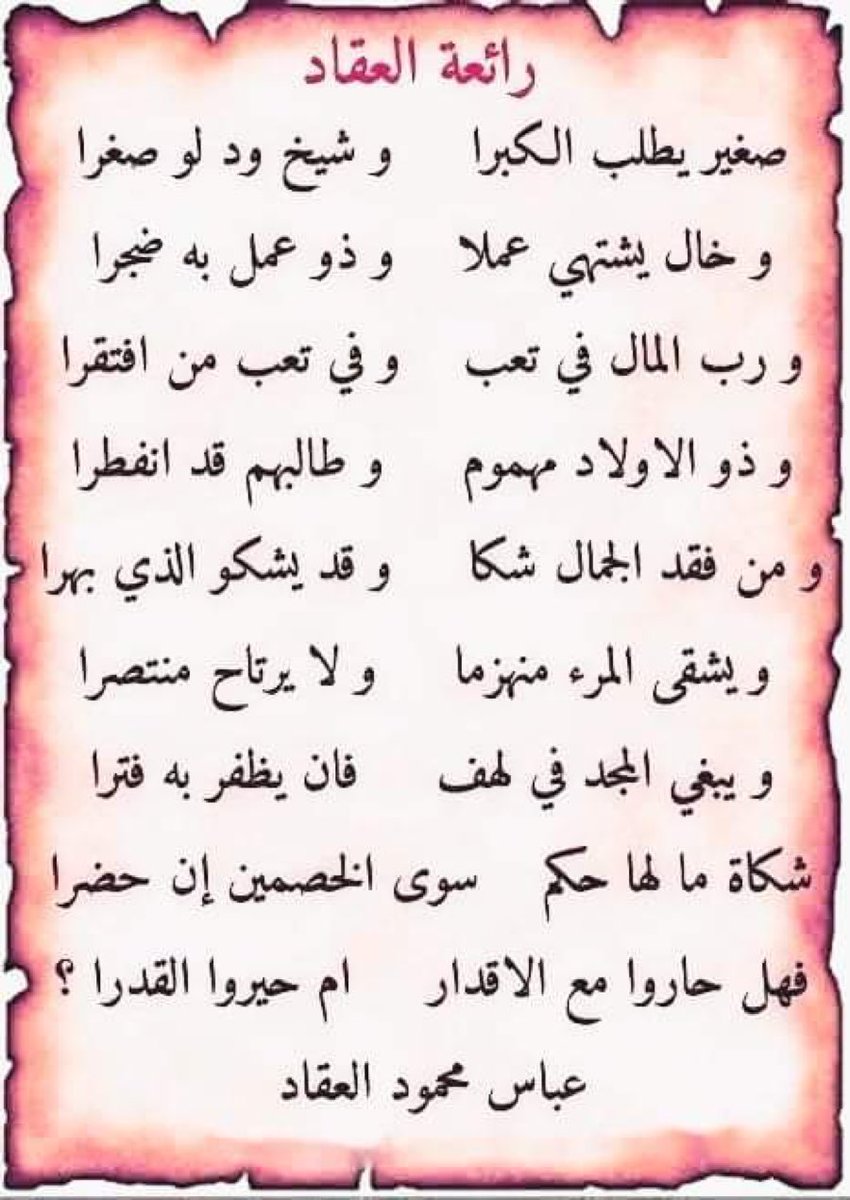 رائعة العقاد
صغير يطلب الكبرا و شيخ ود لو صغرا
و خال يشتهي عملا و ذو عمل به ضجرا
و رب المال في تعب و في تعب من افتقرا
و ذو الاولاد مهموم و طالبهم قد انفطرا
و من فقد الجمال شكا و قد يشكو الذي بهرا
و يشقى المرء منهزما و لا يرتاح منتصرا
و يبغي المجد في لهف فان يظفر به فترا
شكاة ما لها حكم سوى الخصمين إن حضرا
فهل حاروا مع الاقدار ام حيروا القدرا ؟
عباس محمود العقاد